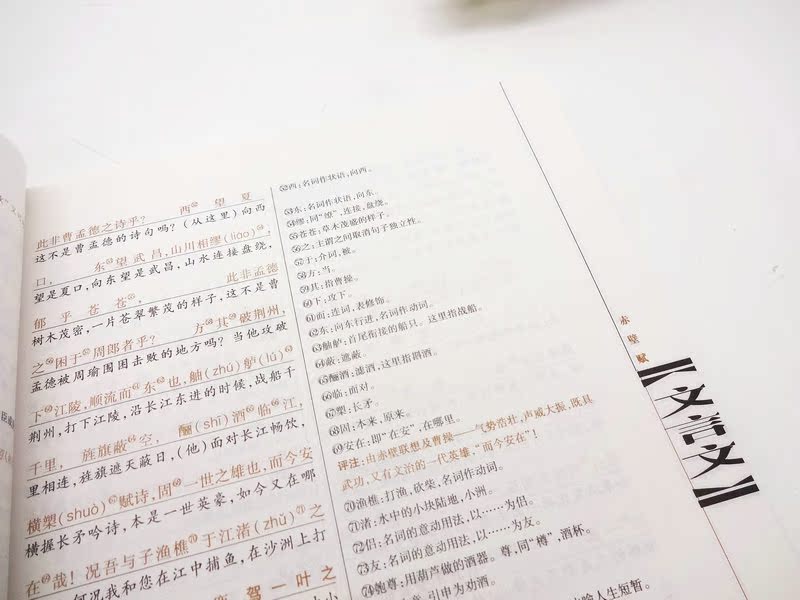 西㊾望夏
此非曹孟德之诗乎?
这不是曹孟德的诗句吗?(从这里)向西
口,东望武昌,山川相缪(liáo),
望是夏口,向东望是武昌,山水连接盘绕,
郁乎苍苍,此非孟德
树木茂密,一片苍翠繁茂的样子,这不是曹
之困于周郎者乎?方其破荆州,
孟德被周瑜围困击败的地方吗?当他攻破
下江陵,顺流而东也,舳(zhú)舻(lú)
荆州,打下江陵,沿长江东进的时候,战船千
千里,旌旗蔽空,酾(shī)酒临江,
里相连,旌旗遮天蔽日,(他)面对长江畅饮,
横槊(shuò)赋诗,固一世之雄也,而今安
横握长矛吟诗,本是一世英豪,如今又在哪
在哉!况吾与子渔樵于江渚(zhǔ)之
何况我和您在江中捕鱼,在沙洲上打
驾一叶之
西:名词作状语,向西。
东:名词作状语,向东。
缪:同"缭",连接,盘绕。
苍苍:草木茂盛的样子。
之:主谓之间取消句子独立性。
于:介词,被。
方:当。
其:指曹操。
下:攻下。
而:连词,表修饰。
东:向东行进,名词作动词。
舳舻:首尾衔接的船只。这里指战船。
蔽:遮蔽。
酾酒:滤酒,这里指斟酒。
临:面对。
槊:长矛。
固:本来,原来。
安在:即"在安",在哪里。
评注:由赤壁联想及曹操——气势浩壮,声威大振,既具
武功,又有文治的一代英雄:"而今安在"!
渔樵:打渔,砍柴,名词作动词。
渚:水中的小块陆地,小洲。
侣:名词的意动用法,以……为侣。
友:名词的意动用法,以……为友。
匏尊:用葫芦做的酒器。尊,同"樽",酒杯。
引申为劝酒。
人生短暂。
赤壁赋
【文言文】